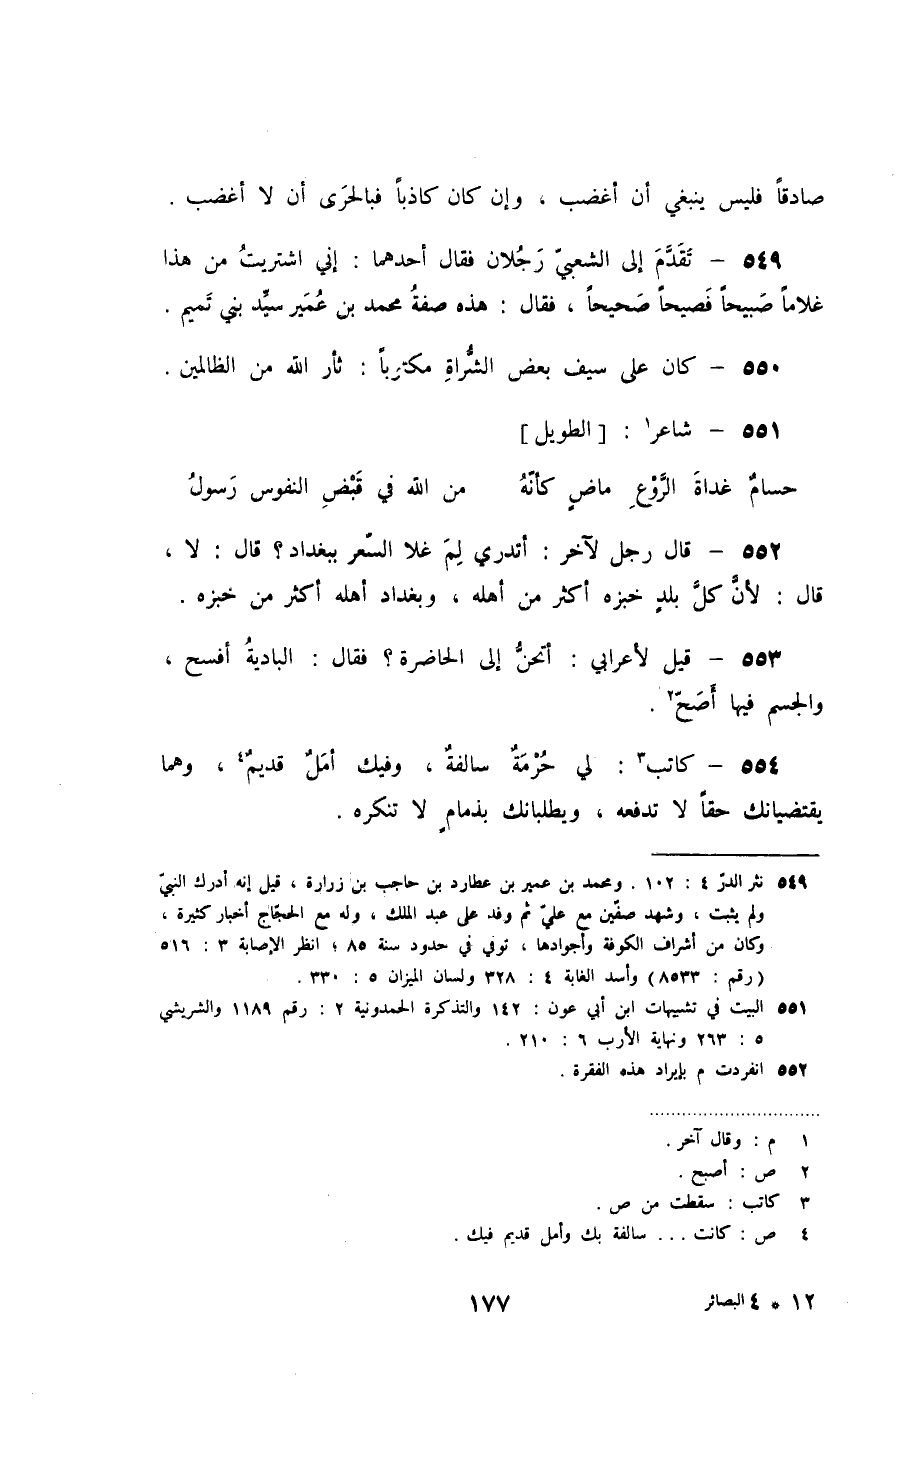 صادقاً فليس ينبغي أن أغضب ، وإن كان كاذباً فبالحَرَى أن لا أغضب .
٥٤٩ – تَقَدَّمَ إلى الشعبيّ رَجُلان فقال أحدهما : إني اشتريتُ من هذا
غلاماً صَبيحاً فَصيحاً صَحيحاً ، فقال : هذه صفةُ محمد بن عُمَير سيِّد بني تَميم .
٥٥٠ – كان على سيف بعض الشُّراةِ مكتوباً : ثأر الله من الظالمين .
٥٥١ – شاعر١ : [ الطويل ]
حسامٌ غداةَ الرَّوْعِ ماضٍ كأنّهُ من الله في قَبْضِ النفوس رَسولُ
٥٥٢ – قال رجل لآخر : أتدري لِمَ غلا السّعر ببغداد؟ قال : لا ،
قال : لأنَّ كلَّ بلدٍ خبزه أكثر من أهله ، وبغداد أهله أكثر من خبزه .
٥٥٣ – قيل لأعرابي : أتحنُّ إلى الحاضرة؟ فقال : الباديةُ أفسح ،
والجسم فيها أَصَحّ٢ .
٥٥٤ – كاتب٣ : لي حُرْمَةٌ سالفةٌ ، وفيك أمَلٌ قديمٌ٤ ، وهما
يقتضيانك حقاً لا تدفعه ، ويطلبانك بذمامٍ لا تنكره .
٥٤٩ نثر الدرّ ٤ : ١٠٢ . ومحمد بن عمير بن عطارد بن حاجب بن زرارة ، قيل إنه أدرك النبيّ
ولم يثبت ، وشهد صفّين مع عليّ ثم وفد على عبد الملك ، وله مع الحجّاج أخبار كثيرة ،
وكان من أشراف الكوفة وأجوادها ، توفي في حدود سنة ٨٥ ؛ انظر الإصابة ٣ : ٥١٦
(رقم : ٨٥٣٣) وأسد الغابة ٤ : ٣٢٨ ولسان الميزان ٥ : ٣٣٠ .
٥٥١ البيت في تشبيهات ابن أبي عون : ١٤٢ والتذكرة الحمدونية ٢ : رقم ١١٨٩ والشريشي
٥ : ٢٦٣ ونهاية الأرب ٦ : ٢١٠ .
٥٥٢ انفردت م بإيراد هذه الفقرة .
١ م : وقال آخر .
٢ ص : أصبح .
٣ كاتب : سقطت من ص .
٤ ص : كانت ... سالفة بك وأمل قديم فيك .
١٢ * ٤ البصائر ١٧٧